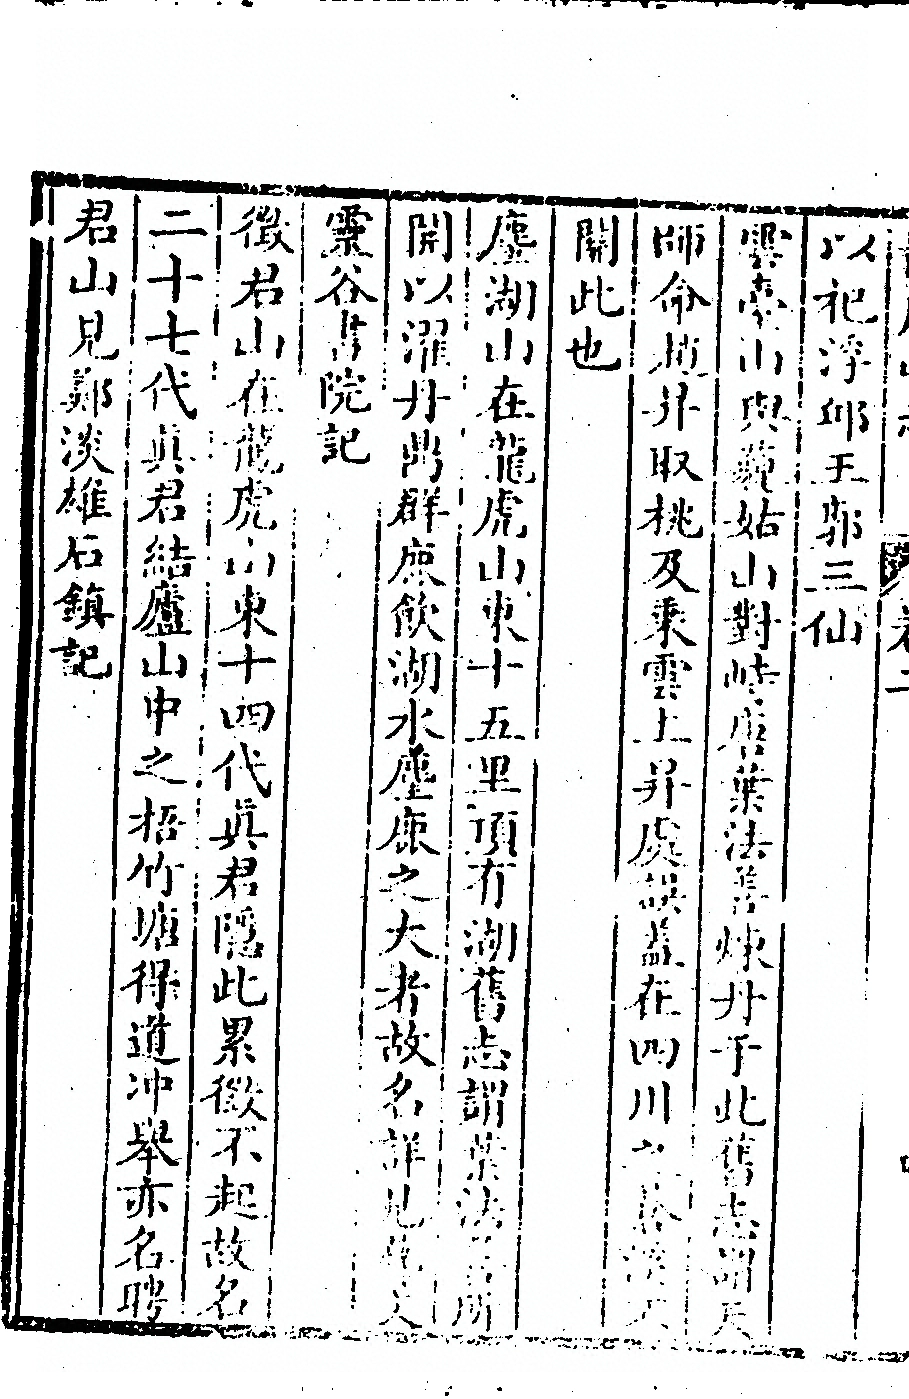 卷二
以祀浮邱王郭三仙
雲臺山與藐姑山對峙唐葉法善煉丹于此舊志謂天
師命趙昇取桃及乘雲上昇處誤蓋在四川之
關此也
塵湖山在龍虎山東十五里頂有湖舊志謂葉法善所
開以濯丹鼎群鹿飲湖水塵鹿之大者故名詳見
靈谷書院記
徵君山在龍虎山東十四代真君隱此累徵不起故名
二十七代真君結廬山中之梧竹塘得道冲舉亦名聘
君山見鄭淡雄石鎮記